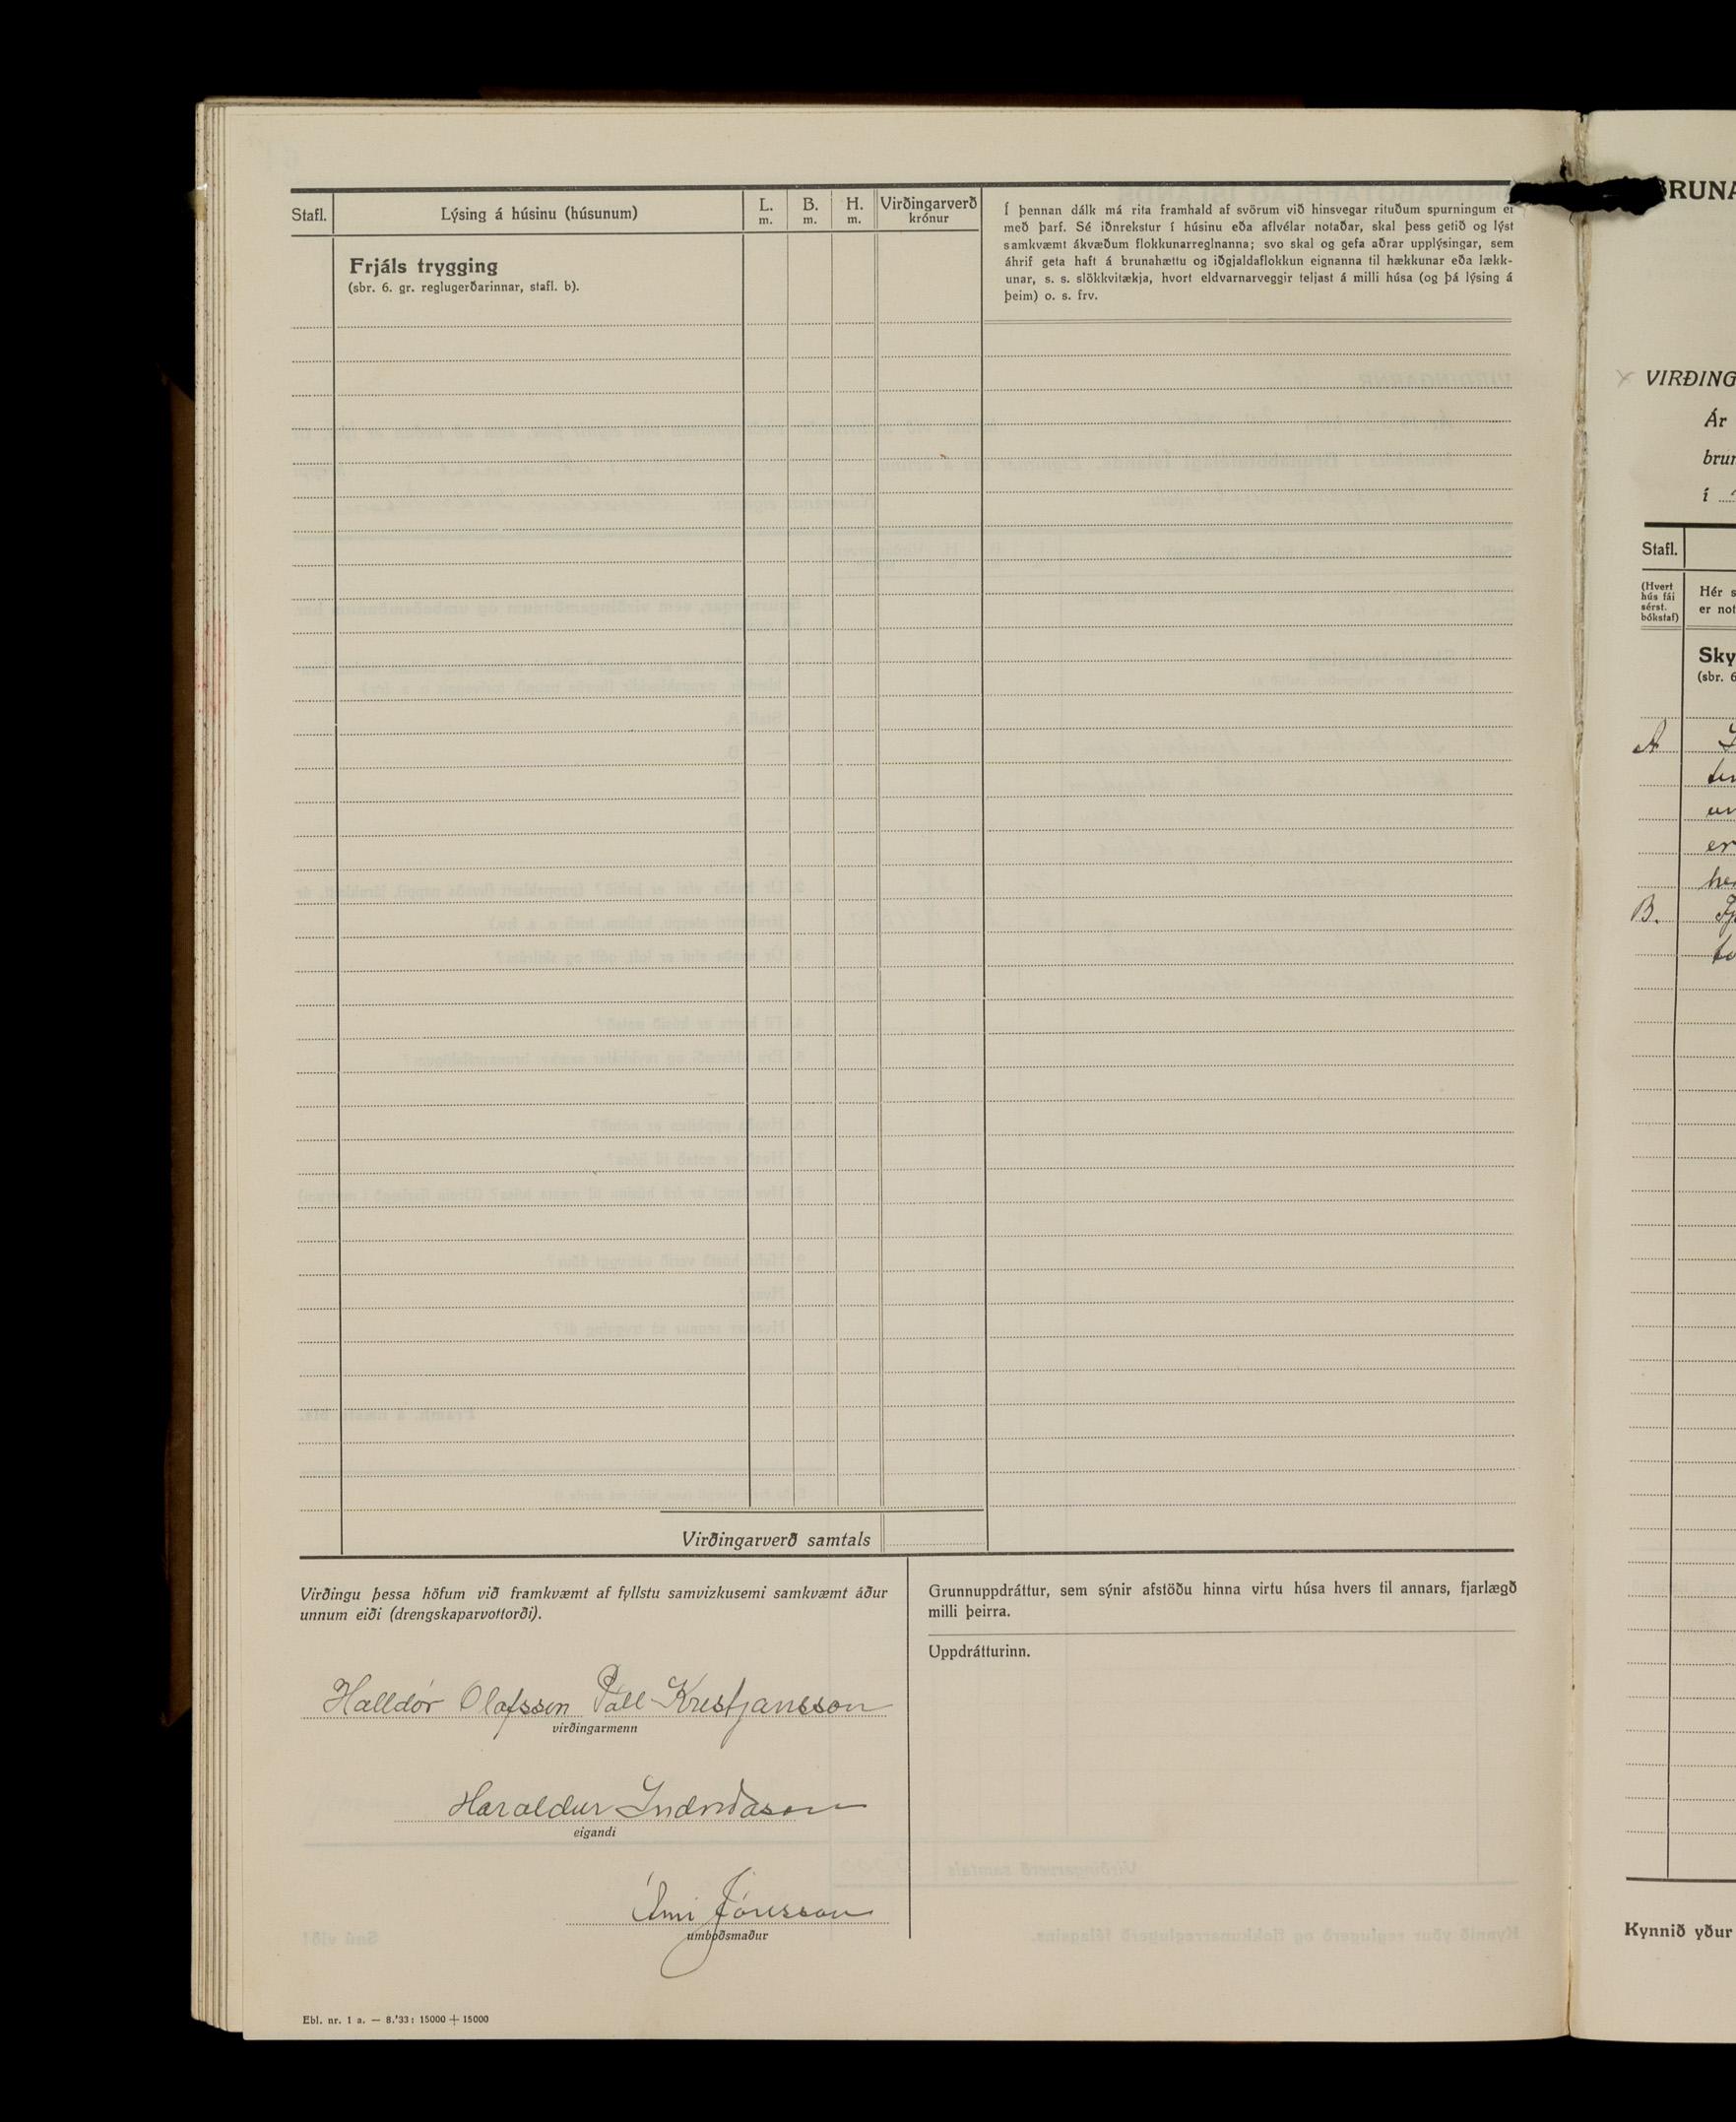 Stafl.
Lýsing á húsinu (húsunum)
L.
m.
B.
m.
H.
m.
Virðingarverð
krónur
Frjáls trygging
(sbr. 6. gr. reglugerðarinnar, stafl. b).
Í þennan dálk má rita framhald af svörum við hinsvegar rituðum spurningum ef
með þarf. Sé iðnrekstur í húsinu eða aflvélar notaðar, skal þess getið og lýst
samkvæmt ákvæðum flokkunarreglnanna; svo skal og gefa aðrar upplýsingar, sem
áhrif geta haft á brunahættu og iðgjaldaflokkun eignanna til hækkunar eða lækk-
unar, s. s. slökkvitækja, hvort eldvarnarveggir teljast á milli húsa (og þá lýsing á
þeim) o. s. frv.
Virðingarverð samtals
Virðingu þessa höfum við framkvæmt af fyllstu samvizkusemi samkvæmt áður
unnum eiði (drengskaparvottorði).
Halldór Olafsson Páll Kristjansson
virðingarmenn
Haraldur Indriðason
eigandi
Árni Jónsson
umboðsmaður
Grunnuppdráttur, sem sýnir afstöðu hinna virtu húsa hvers til annars, fjarlægð
milli þeirra.
Uppdrátturinn.
Ebl. nr. 1 a. — 8.'33: 15000 + 15000
BRUNA
VIRÐING
Ár
brun
í
Stafl.
(Hvert
hús fái
sérst.
bókstaf)
Hér s
er not
Sky
(sbr. 6
A
er
B.
Kynnið yður